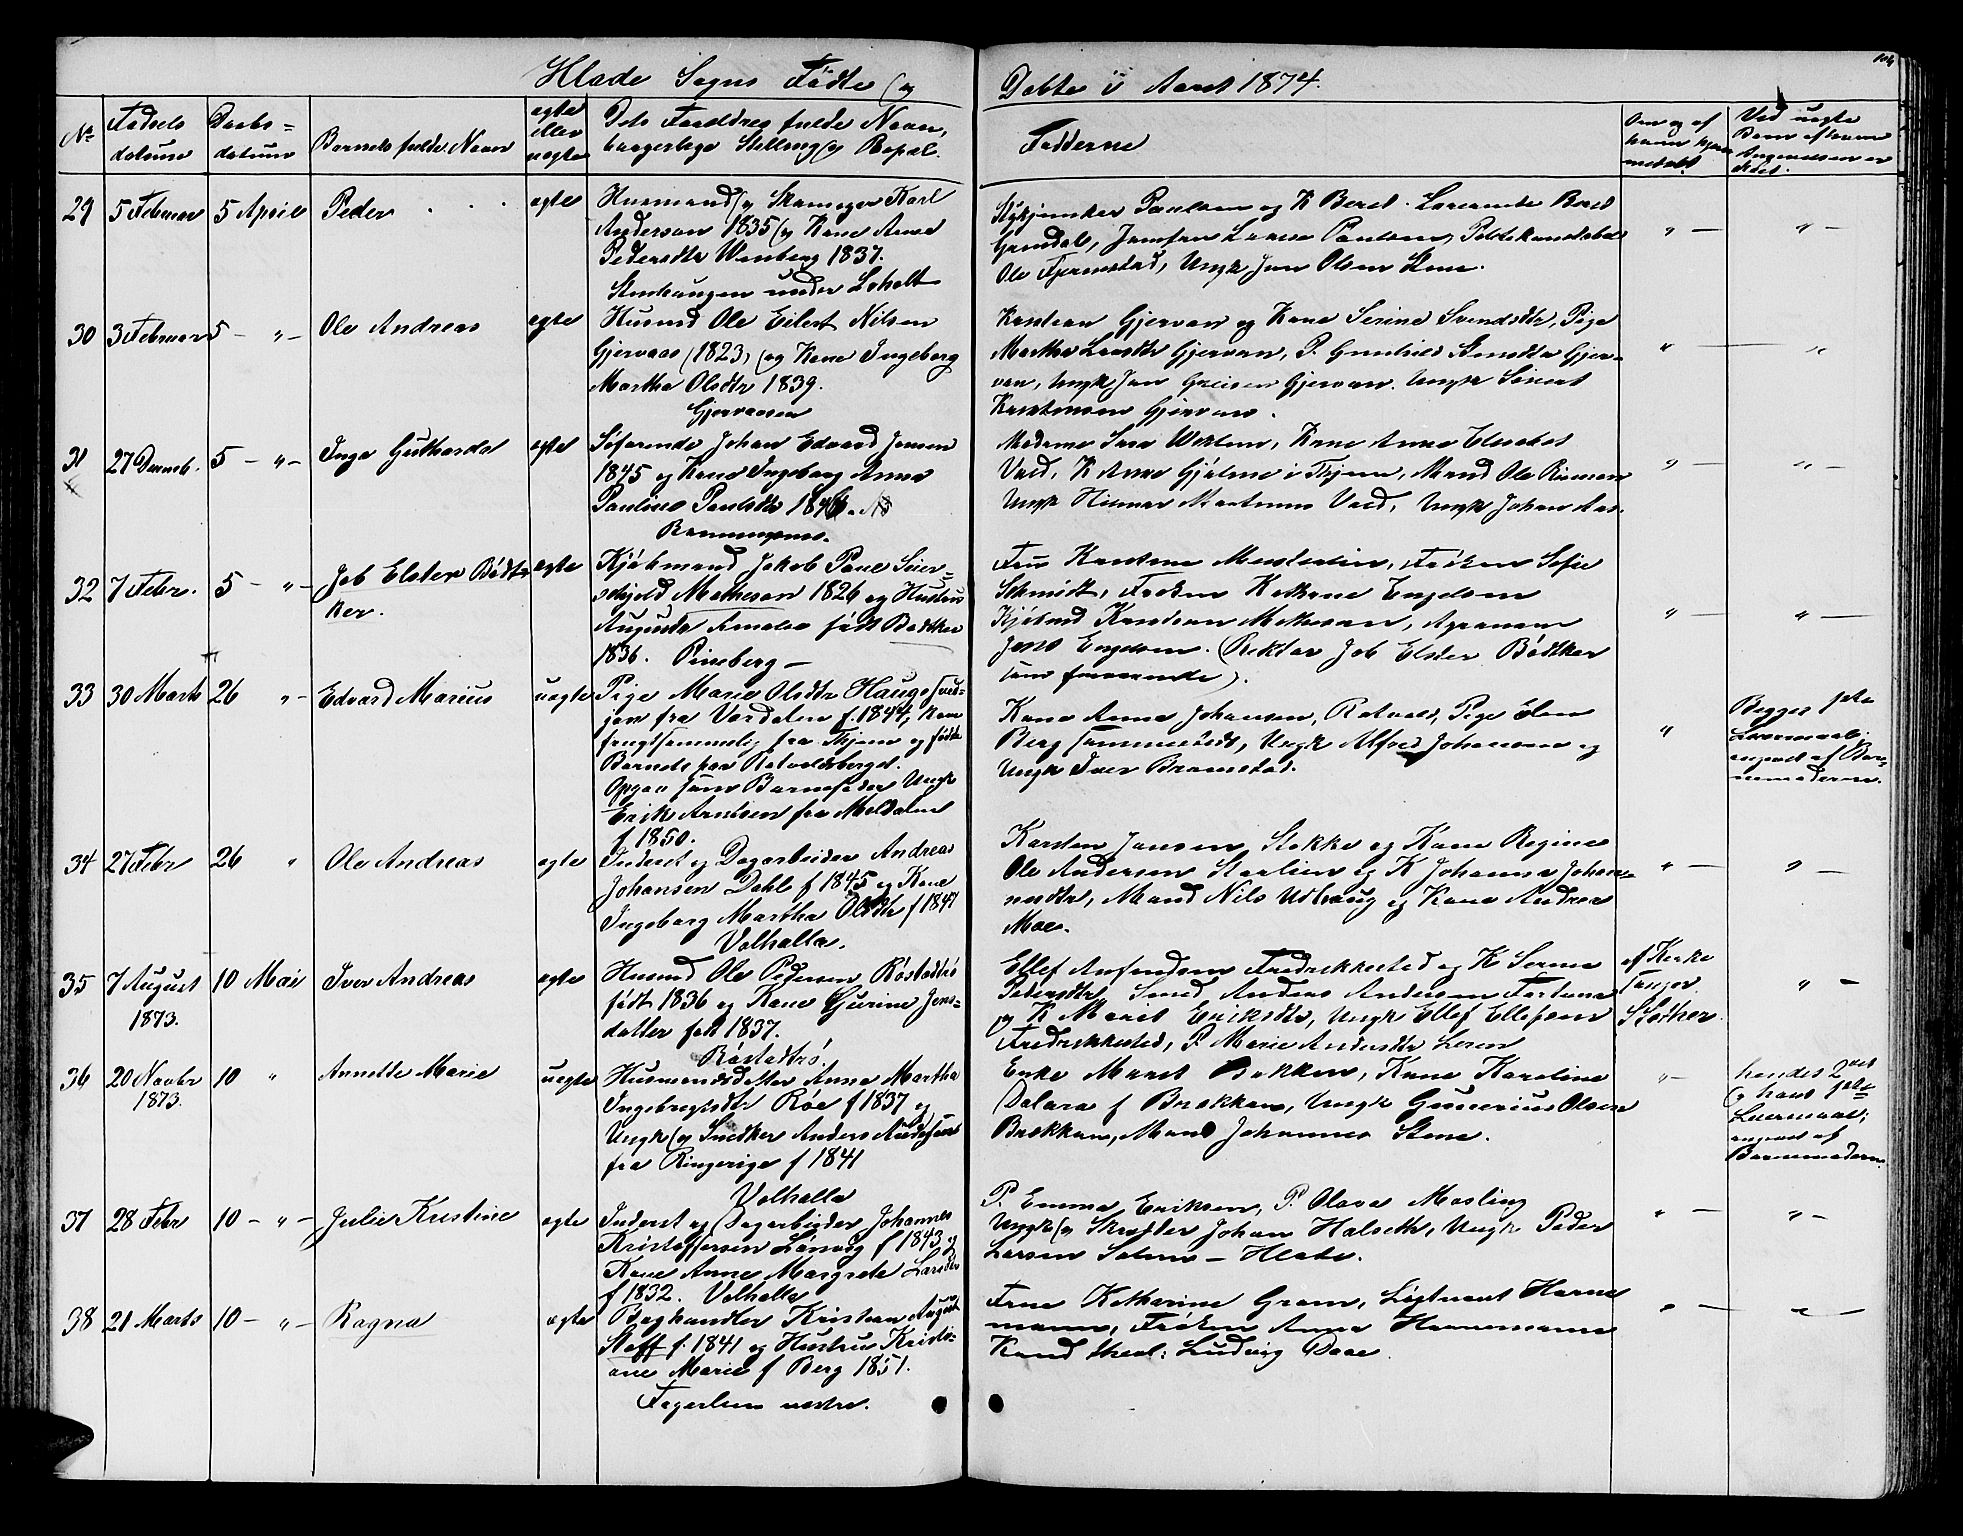 Hlade Sogns Fødte og Døbte i Aaret 1874.
104
No
Fødsels datum
Daabs- datum
Barnets fulde Navn
ægte eller uægte
Dets Forældres fulde Navn, borgerlige Stilling og Bopæl.
Fadderne
Om og af hvem hjemmedøbt.
Ved uægte Børn af hvem Angivelsen er skeet.
29 5 Februar 5 April Peder ægte
Husmand og Skomager Karl
Anderson 1835 og Kone Anne
Pedersdtr Wenberg 1837.
Stenhaugen under Leholt
Paulsen og K Beret
Ole Fjermstad, Ungk Jon Olsen Stene.
30 3 Februar 5 - " - Ole Andreas ægte
Husmd Ole Eilert Nilsen
Gjervaas (1823) og Kone Ingeborg
Martha Olsdtr 1839.
Gjervaasen
Kristian Gjervan og Kone Serine Svendsdtr, Pige
Martha Larsdtr Gjervan, P. Gunhild Gjer-
van, Ungk Jon Gjervan. Ungk Sivert
Kristensen Gjervan.
31 27 Decemb. 5 - " - Inga Guttharda ægte
Søfarende Johan Edvard Jensen
1845 og Kone Ingeborg Anna
Pauline Paulsdtr 1846.
Madame Sara K Anne Elisabet
K Anne Gjølme i Thjem, Mand Ole
Ungk Hilmar Martinus Ungk Johan Aas.
32 7 Febr. 5 - " - Job Elster Bødt-
ker. ægte
Kjøbmand Jakob Paul Seier-
skjold Matheson 1826 og Hustru
Augusta Amalie født Bødtker
1836. Pineberg -
Fru Kirstine Frøken Sofie
Schmidt, Frøken Kathrine Engelsen
Kjøbmd Kristian Matheson, Agronom
Jens Engelsen. (Rektor Job Elster Bødtker
som fraværende).
33 30 Marts 26 " - Edvard Marius uægte
Pige Marie Olsdtr Haugs
fra Værdalen f. 1844, kom
frugtsommelig fra Thjem og fødte
Barnet paa Rotvoldberget.
Opgav som Barnefader Ungk
Erik Arntsen fra Meldalen
f 1850.
Kone Anna Johansen, Rotvold, Pige Elen
Berg sammesteds, Ungk Alfred Johansen og
Ungk Iver Bromstad.
Begges 1ste
Leiermaal;
angivet af Bar-
nemoderen.
34 27 Febr 26 " Ole Andreas ægte
Inderst og Dagarbeider Andreas
Johansen Dahl f 1845 og Kone
Ingeborg Martha Olsdtr f 1847
Valhalla.
Karsten Jensen Stokke og Kone Regine
Ole Andersen Stavlien og K Johanna Johan-
nesdtr, Mand Nils Udhaug og Kone Andrea
Moe.
35 7 August 1873. 10 Mai Iver Andreas ægte
Husmd Ole Pedersen Røstadtrø
født 1836 og Kone Gurine Jens-
datter født 1837.
Røstadtrø.
Ellef Fredrikkested og K Serine
Pedersdtr, Smed Anders Andersen Fortuna
og K Maret Eriksdtr, Ungk Ellef Ellefsen
Fredrikkested, P. Marie Andersdtr Leren
af Kirke
Sanger
Støther
36 20 Novbr 1873. 10 " Annette Marie uægte
Husmandsdatter Anne Martha
Ingebrigtsdtr Røe f 1837 og
Ungk og Snedker Anders Andersen
fra Ringerige f 1841
Valhalla
Enke Maret Bakken, Kone Karoline
Dalara f Brækkan, Ungk Gunerius Olsen
Brækkan, Mand Johannes Stene.
hendes 2det
og hans 1ste
Leiermaal;
angivet af
Barnemoderen.
37 28 Febr 10 - " - Julie Kristine ægte
Inderst og Dagarbeider Johannes
Kristoffersen Lønvig f 1843 og
Kone Anne Margrete Larsdtr
f 1832. Valhalla
P. Emma Eriksen, P. Olava Mosling
Ungk og Skrædder Johan Halseth, Ungk Peder
Larsen Solem - Hlade.
38 21 Marts 10 - " - Ragna ægte
Boghandler Kristian August
Hoff f. 1841 og Hustru Kristi-
ane Marie f Berg 1851.
Fagerlien vestre.
Frue Katharine Gram, Løitnant Hanne-
mann, Frøken Anna Hannemann
Kand theol: Ludvig Daae.